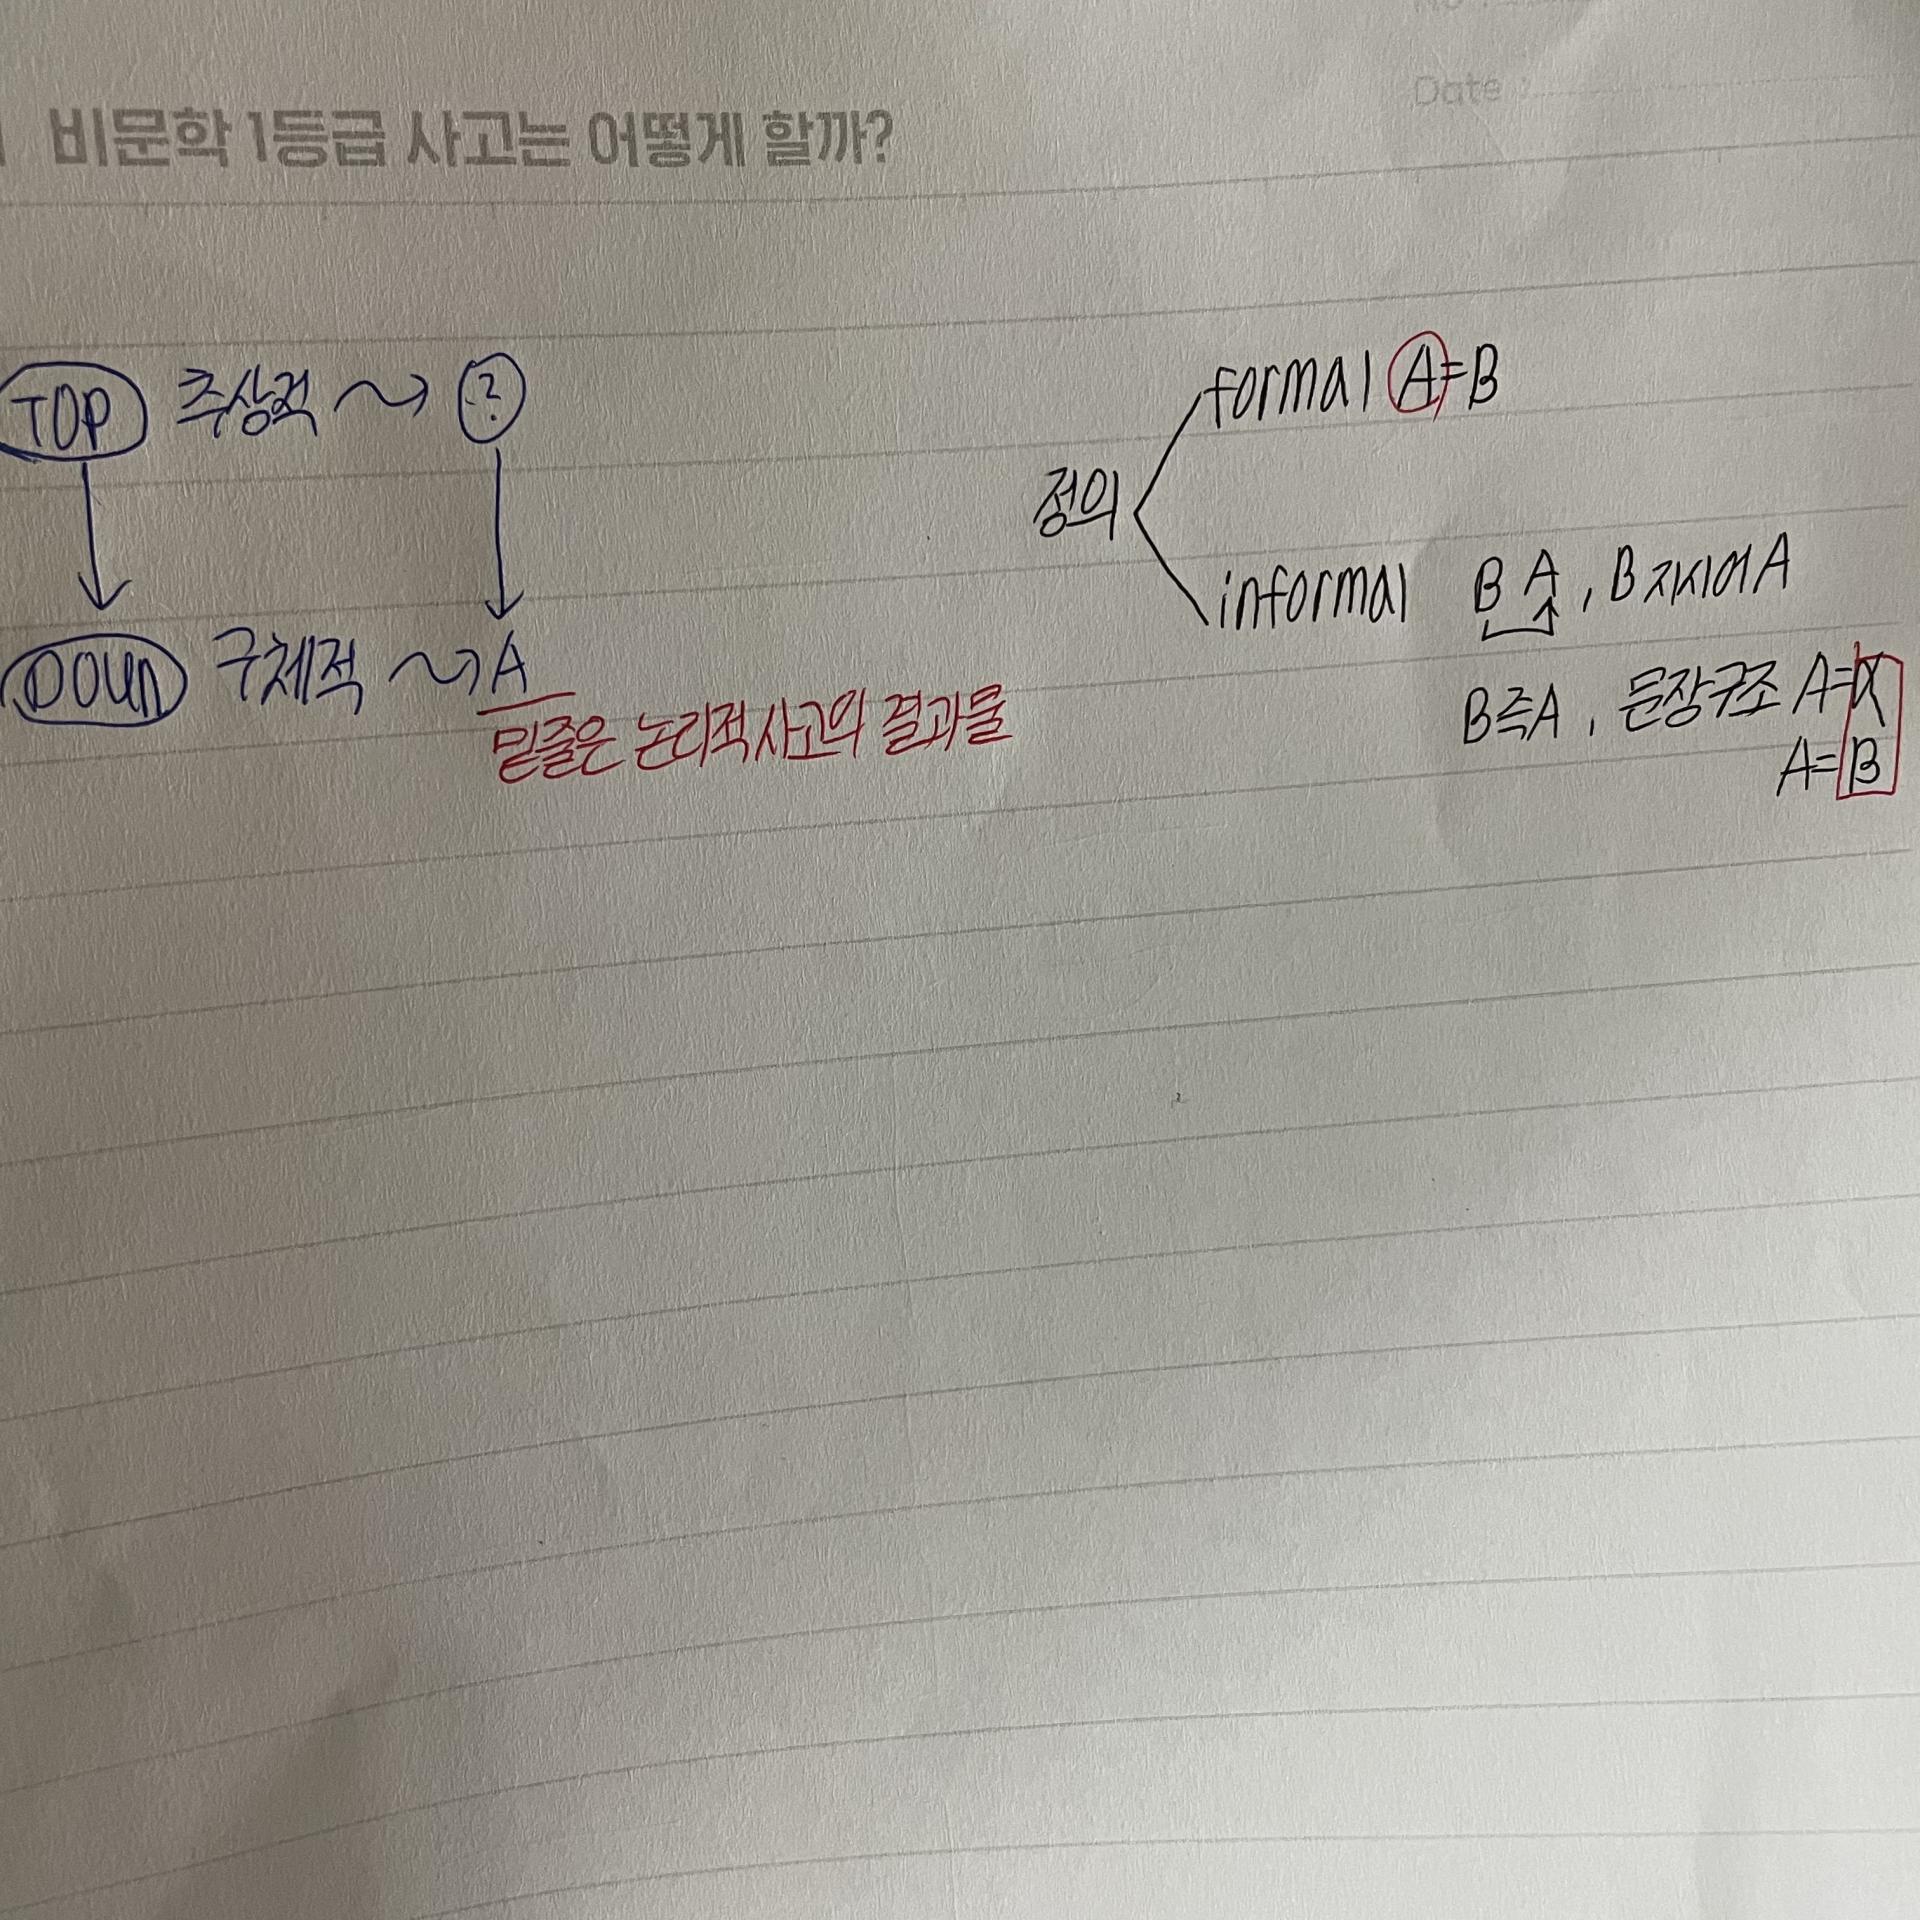 Date :
비문학 1등급 사고는 어떻게 할까?
TOP 추상적 ?
DOWN 구체적 A
밑줄은 논리적 사고의 결과물
정의
formal A=B
informal B A , B 지시어 A
B 즉 A , 문장구조 A=α
A=B